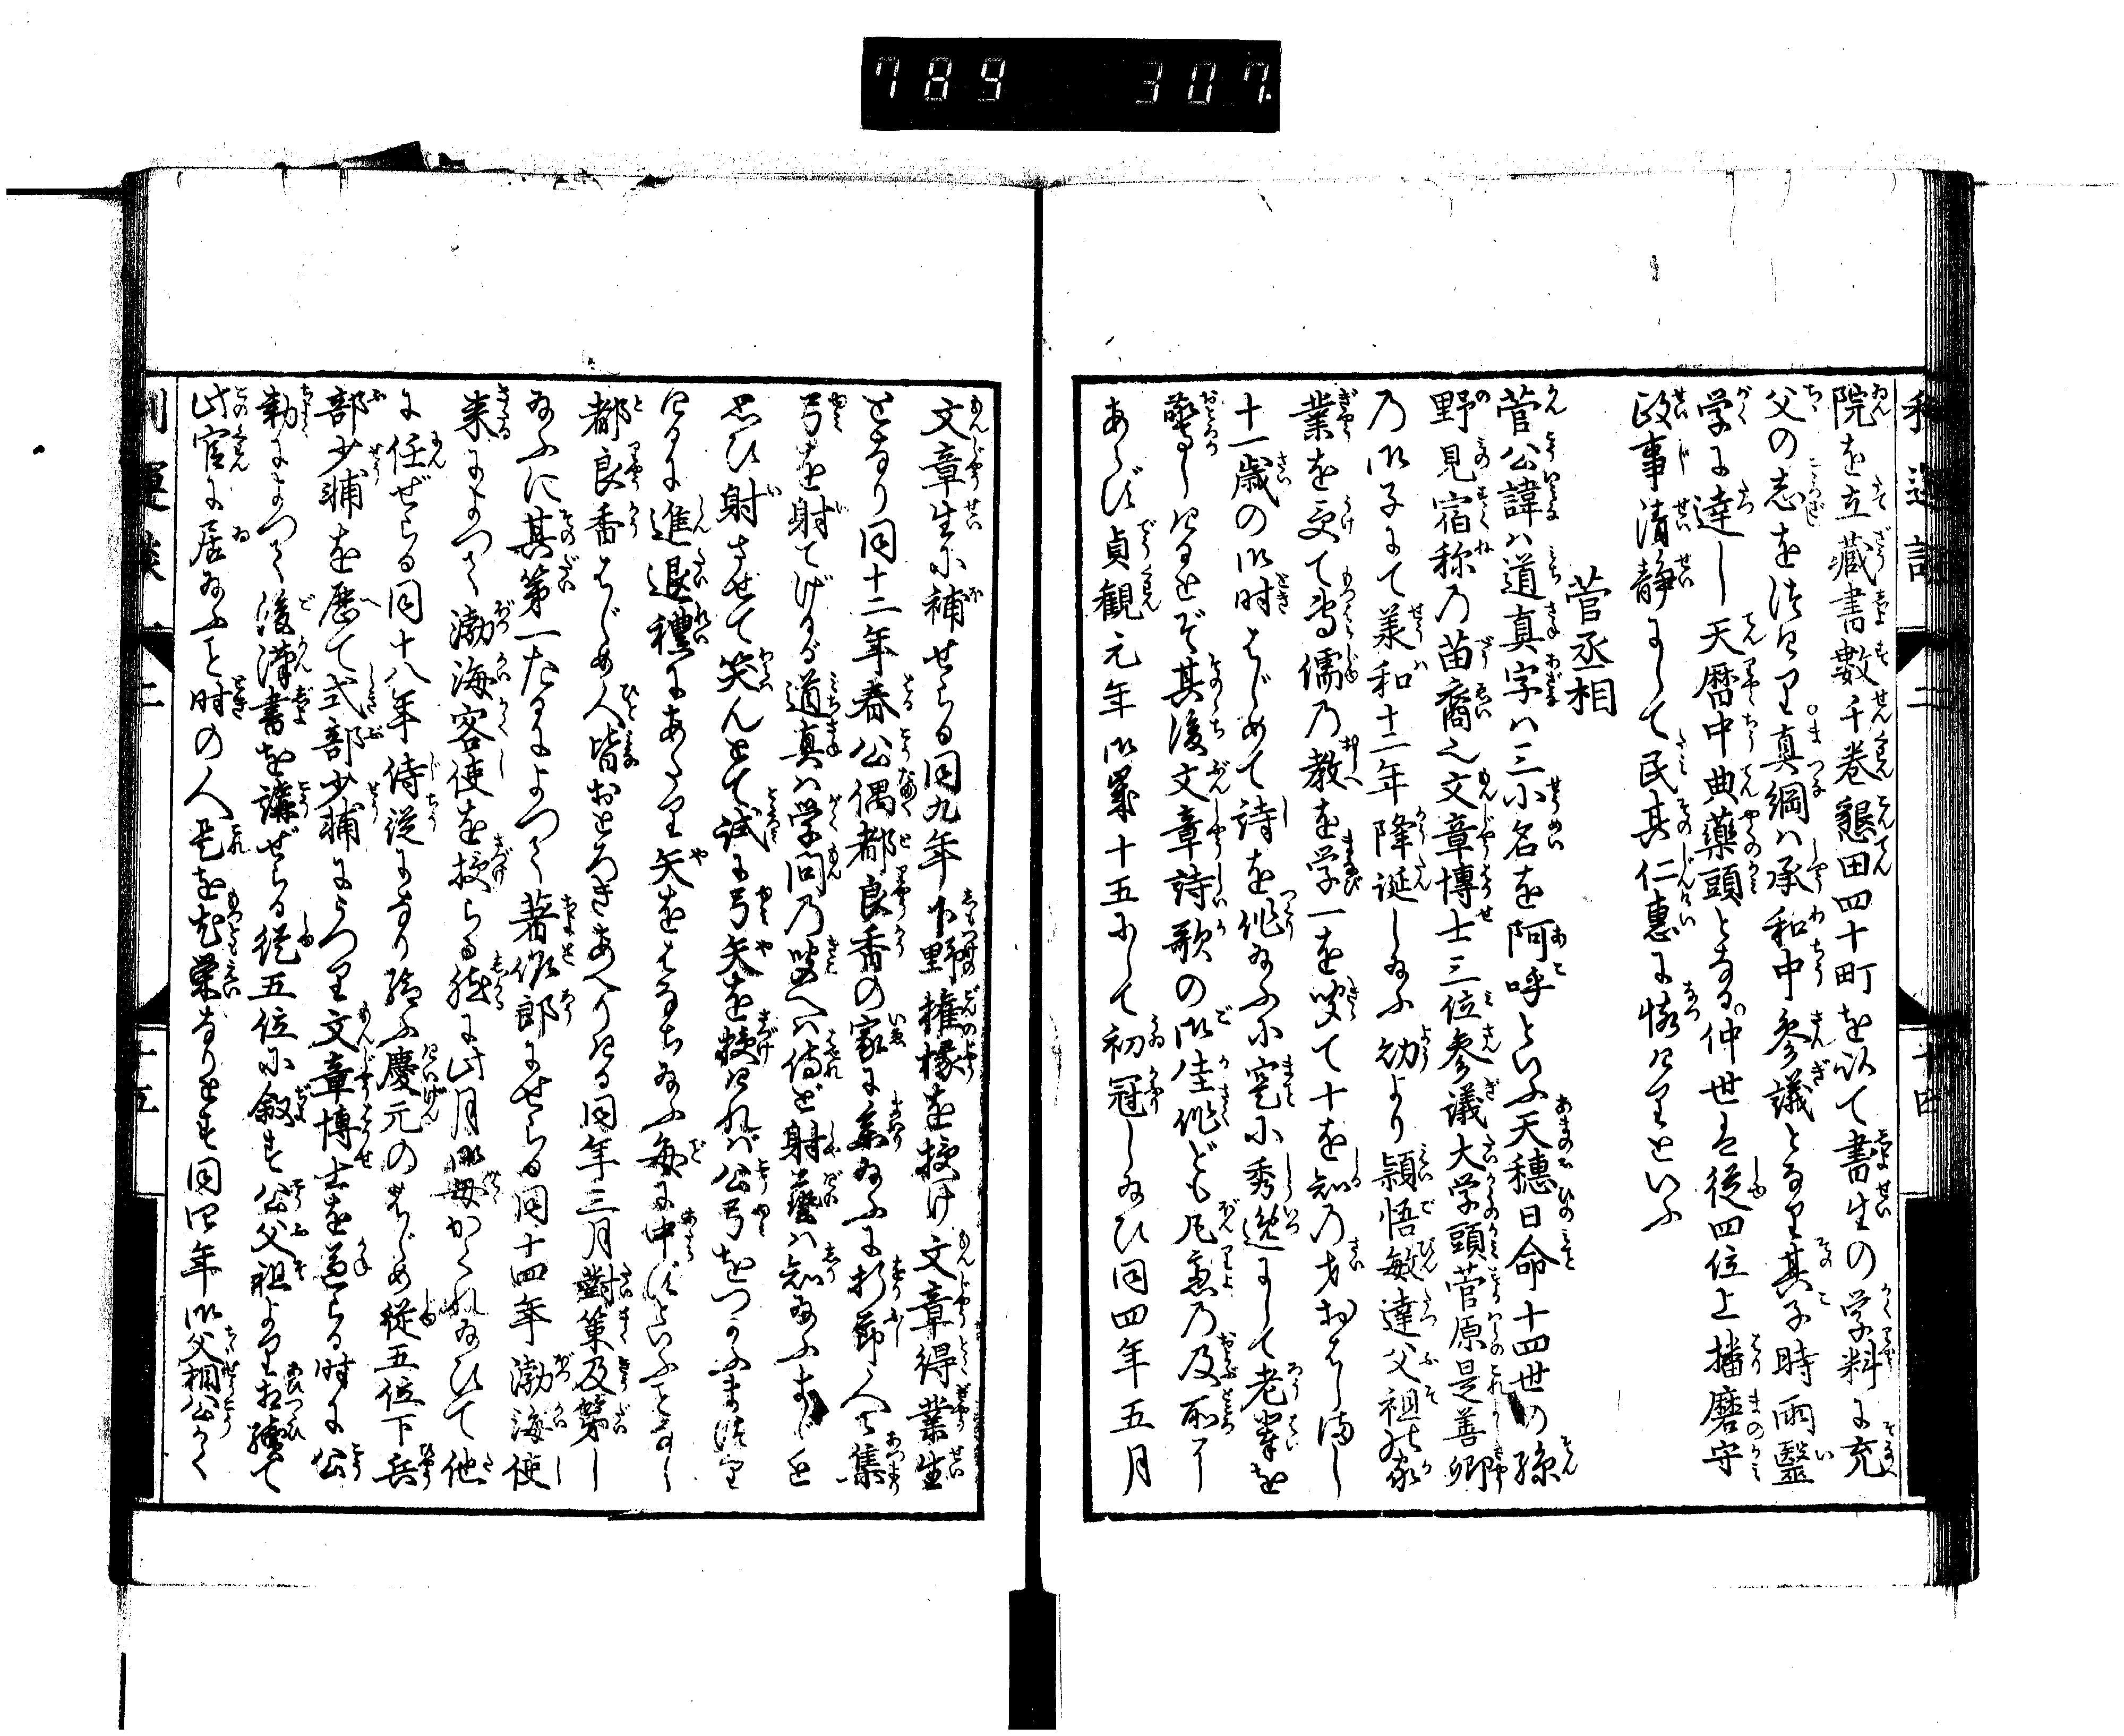 789 307
院を立蔵書数千巻懇田四十町を以て書生の学料に充
父の志を継けり真綱は承和中参議となり其子時雨医
学に達し天暦中典薬頭となる仲世は従四位上播磨守
政事清静にして民其仁恵に懐けりといふ
菅丞相
菅公諱は道真字は三小名を阿呼といふ天穂日命十四世の孫
野見宿祢の苗裔也文章博士三位参議大学頭菅原是善卿
の御子にて羕和十二年降誕し給ふ幼より穎悟敏達父祖の家
業を受て専儒の教を学一を聞て十を知の才おはしまし
十一歳の御時はじめて詩を作給ふ小寔に秀逸にして老輩を
驚しけるとぞ其後文章詩歌の御佳作ども凡慮の及所に
あらず貞観元年御歳十五にして初冠し給ひ同四年五月
文章生に補せらる同九年下野権掾を授け文章得業生
となり同十二年春公偶都良香の家に参給ふに折節人々集
弓を射てげるが道真は学問の聞へは侍ど射藝は知給ふまじと
思ひ射させて笑んとて試に弓矢を授けれバ公弓をつ
けるに進退禮にあたり矢をはなち給ふ毎に中ずといふことなし
都良香はじめ人皆おどろきあへりける同年三月對策及第し
給ふに其第一たるによつて著作郎にせらる同十四年渤海使
来によつて渤海客使を授らる然に此月御母かくれ給ひて他
に任ぜらる同十八年侍従になり給ふ慶元のはじめ従五位下兵
部少輔を歴て式部少輔にうつり文章博士を兼らる時に公
勅によつて後漢書を講ぜらる従五位に叙せ公父祖より相続て
此官に居給ふこと時の人是を尤栄なりとす同四年御父相公かく